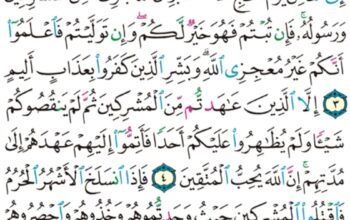 وَرَسُولُهُۥ ۚ فَإِن تُبْتُمْ فَهُوَ خَيْرٌ لَّكُمْ ۖ وَإِن تَوَلَّيْتُمْ فَٱعْلَمُوٓا۟
أَنَّكُمْ غَيْرُ مُعْجِزِى ٱللَّهِ ۗ وَبَشِّرِ ٱلَّذِينَ كَفَرُوا۟ بِعَذَابٍ أَلِيمٍ
٣ إِلَّا ٱلَّذِينَ عَـٰهَدتُّم مِّنَ ٱلْمُشْرِكِينَ ثُمَّ لَمْ يَنقُصُوكُمْ
شَيْـًٔا وَلَمْ يُظَـٰهِرُوا۟ عَلَيْكُمْ أَحَدًا فَأَتِمُّوٓا۟ إِلَيْهِمْ عَهْدَهُمْ إِلَىٰ
مُدَّتِهِمْ ۚ إِنَّ ٱللَّهَ يُحِبُّ ٱلْمُتَّقِينَ ٤ فَإِذَا ٱنسَلَخَ ٱلْأَشْهُرُ ٱلْحُرُمُ
فَٱقْتُلُوا۟ ٱلْمُشْرِكِينَ حَيْثُ وَجَدتُّمُوهُمْ وَخُذُوهُمْ وَٱحْصُرُوهُمْ